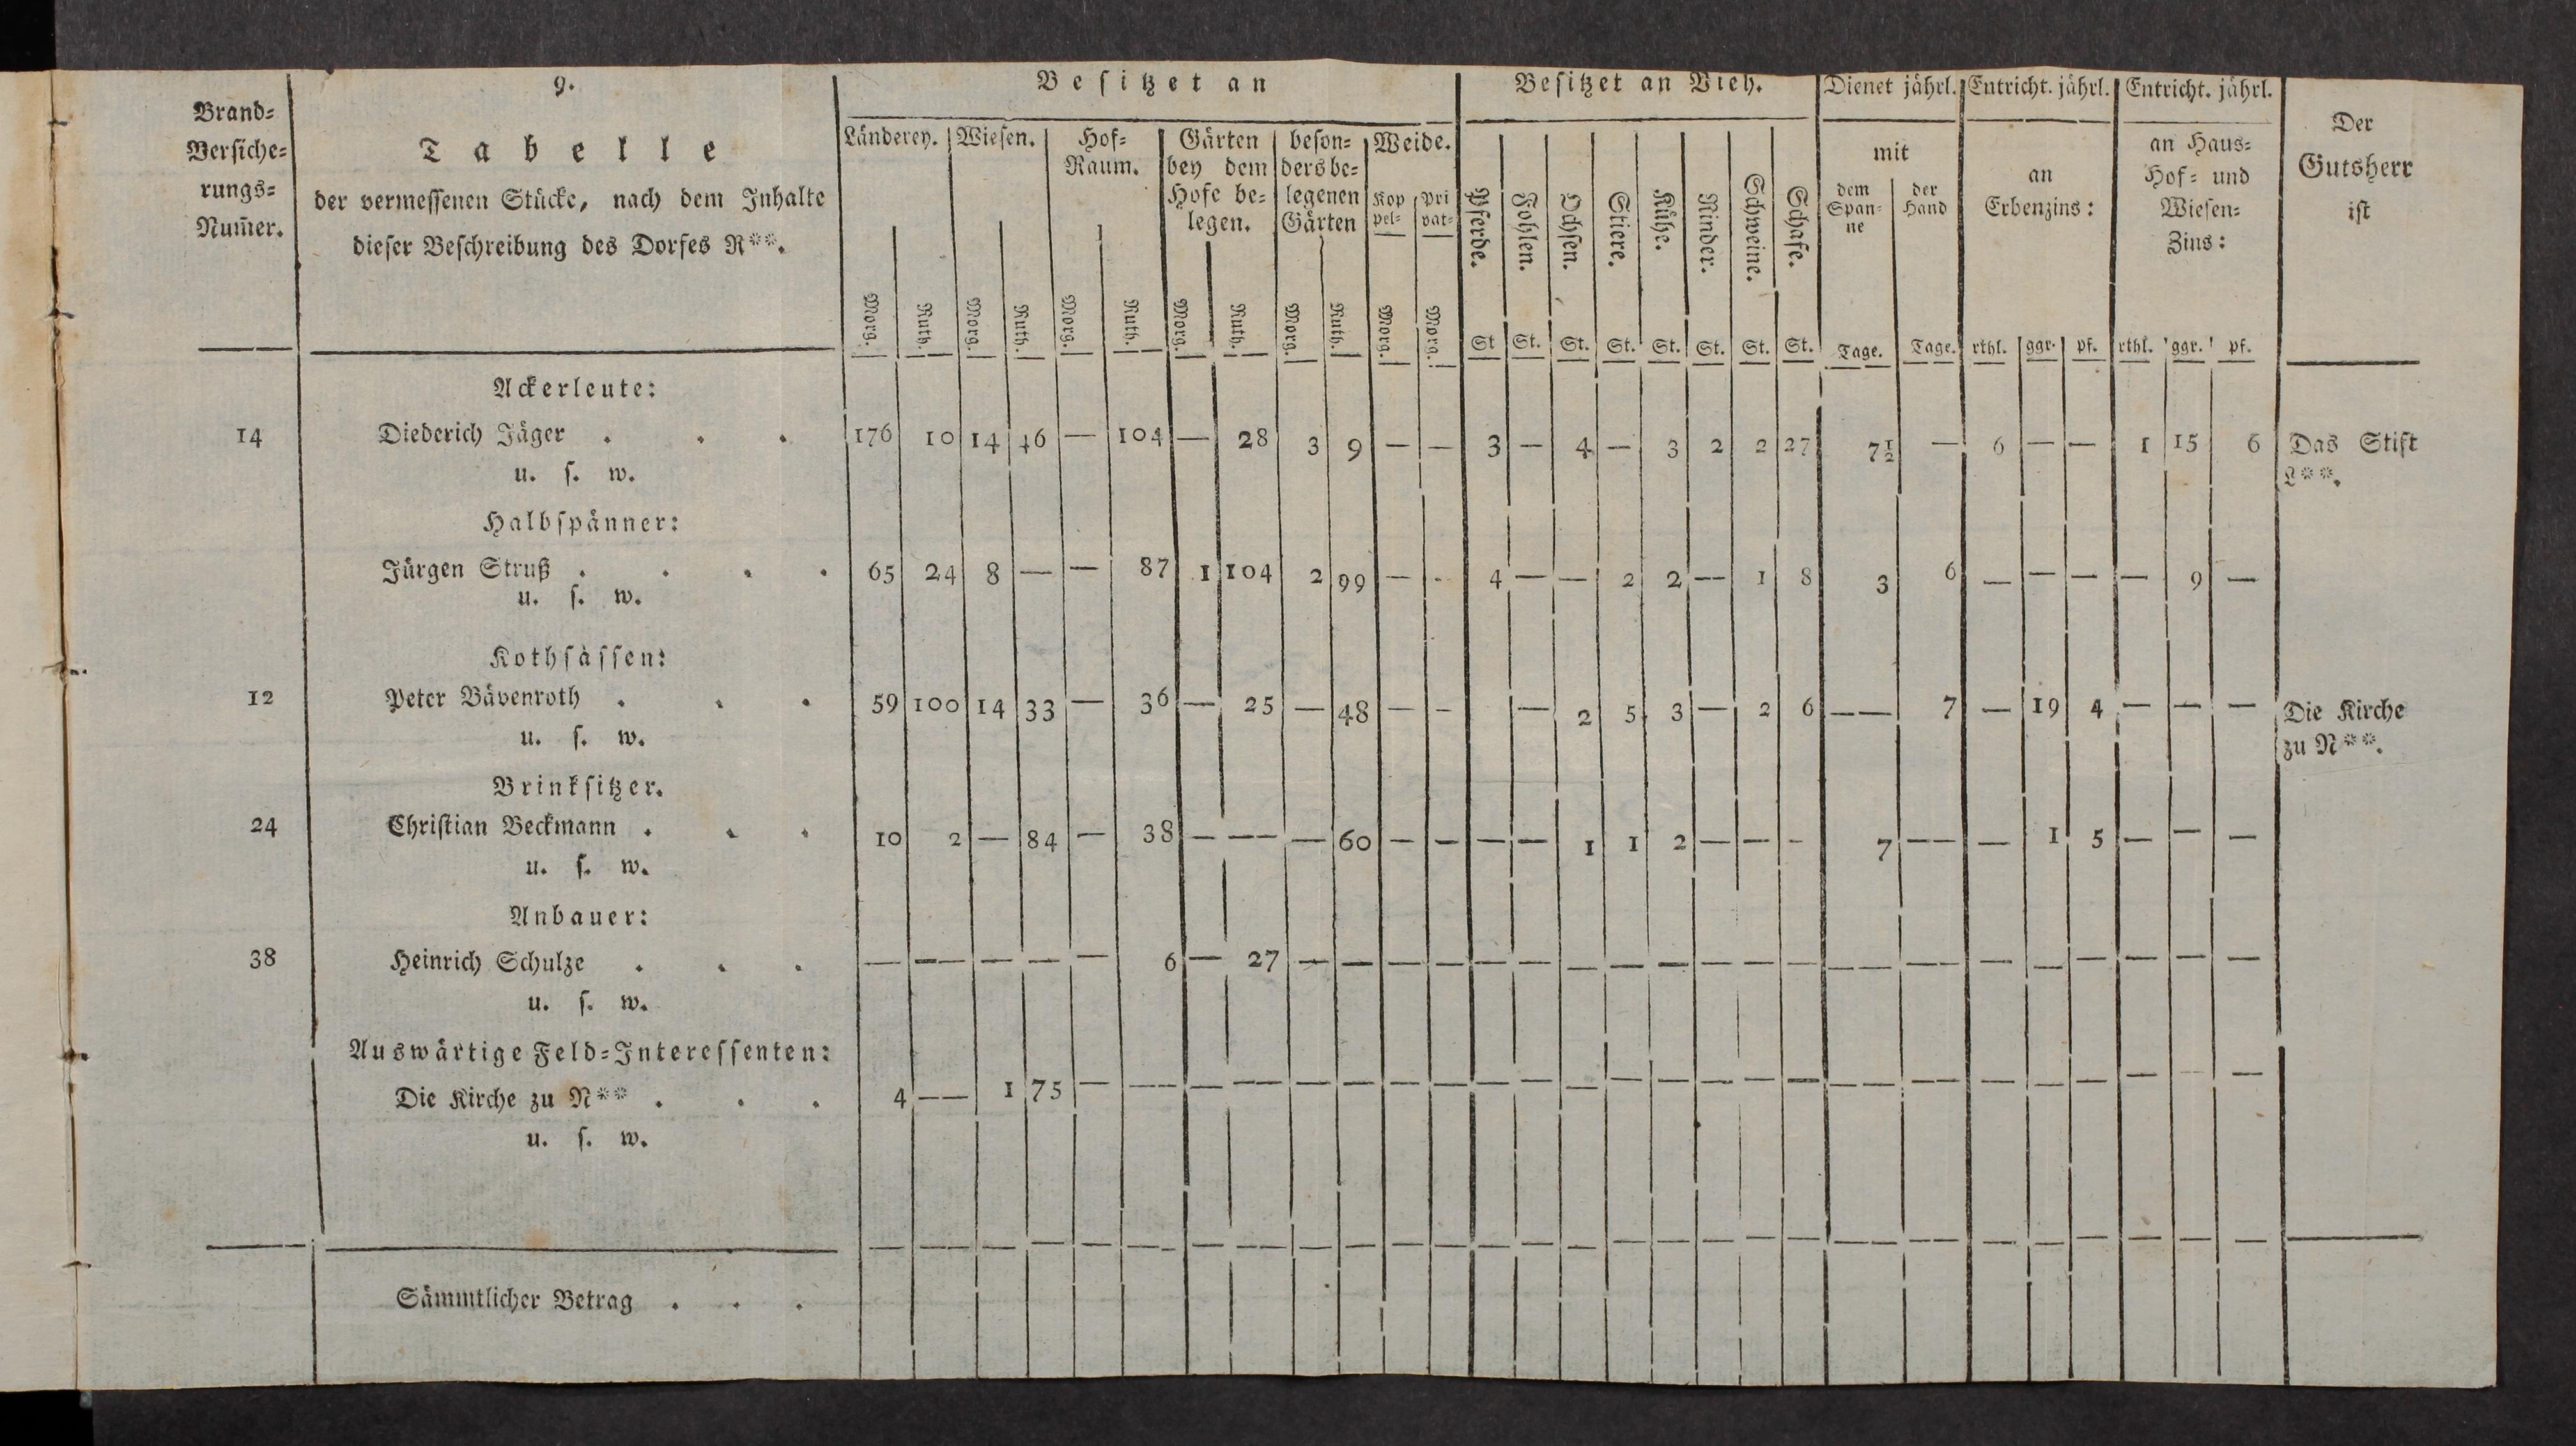 9.
Brand-
Versiche-
rungs-
Num̄er.
Tabelle
der vermessenen Stücke, nach dem Inhalte
dieser Beschreibung des Dorfes R**.
Besitzet an
Länderey. Wiesen. Hof-Raum. Gärten bey dem Hofe be-legen. beson-ders be-legenen Gärten Weide. Kop pel- Pri vat-
Morg. Ruth. Morg. Ruth. Morg. Ruth. Morg. Ruth. Morg. Ruth. Morg. Morg.
Besitzet an Vieh.
Pferde. Fohlen. Ochsen. Stiere. Kühe. Rinder. Schweine. Schafe.
St St. St. St. St. St. St. St.
Dienet jährl.
mit
dem Span-ne der Hand
Tage. Tage.
Entricht. jährl.
an
Erbenzins:
rthl. ggr. pf.
Entricht. jährl.
an Haus-
Hof- und
Wiesen-
Zins:
rthl. ggr. pf.
Der
Gutsherr
ist
Ackerleute:
14 Diederich Jäger . . . 176 10 14 46 — 104 — 28 3 9 — — 3 — 4 — 3 2 2 27 7½ — 6 — — 1 15 6 Das Stift
L**.
u. s. w.
Halbspänner:
Jürgen Struß . . . . 65 24 8 — — 87 1 104 2 99 — - 4 — — 2 2 — 1 8 3 6 — — — — 9 —
u. s. w.
Kothsassen:
12 Peter Bävenroth . . . 59 100 14 33 — 36 — 25 — 48 — — — 2 5 3 — 2 6 — 7 — 19 4 — — — Die Kirche
zu N**.
u. s. w.
Brinksitzer.
24 Christian Beckmann . . . 10 2 — 84 — 38 — — — 60 — — — — 1 1 2 — — - 7 — — 1 5 — — —
u. s. w.
Anbauer:
38 Heinrich Schulze . . . — — — — — 6 — 27 — — — — — — — — — — — — — — — — — — — —
u. s. w.
Auswärtige Feld-Interessenten:
Die Kirche zu N** . . . 4 — 1 75 — — — — — — — — — — — — — — — — — — — — — — — —
u. s. w.
Sämmtlicher Betrag . . .